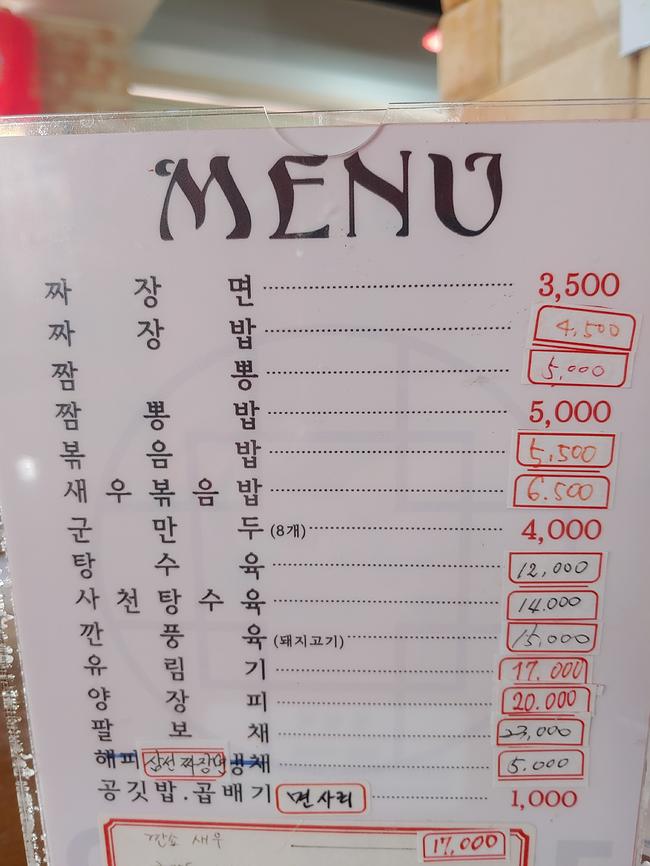 MENU
짜장면 3,500
짜장밥 4,500
짬뽕 5,000
짬뽕밥 5,000
볶음밥 5,500
새우볶음밥 6.500
군만두(8개) 4,000
탕수육 12,000
사천탕수육 14.000
깐풍육(돼지고기) 15,000
유림기 17.000
양장피 20.000
팔보채 23,000
해피 삼선짜장면 냉채 5.000
공깃밥.곱배기 면사리 1,000
깐쇼새우 17,000